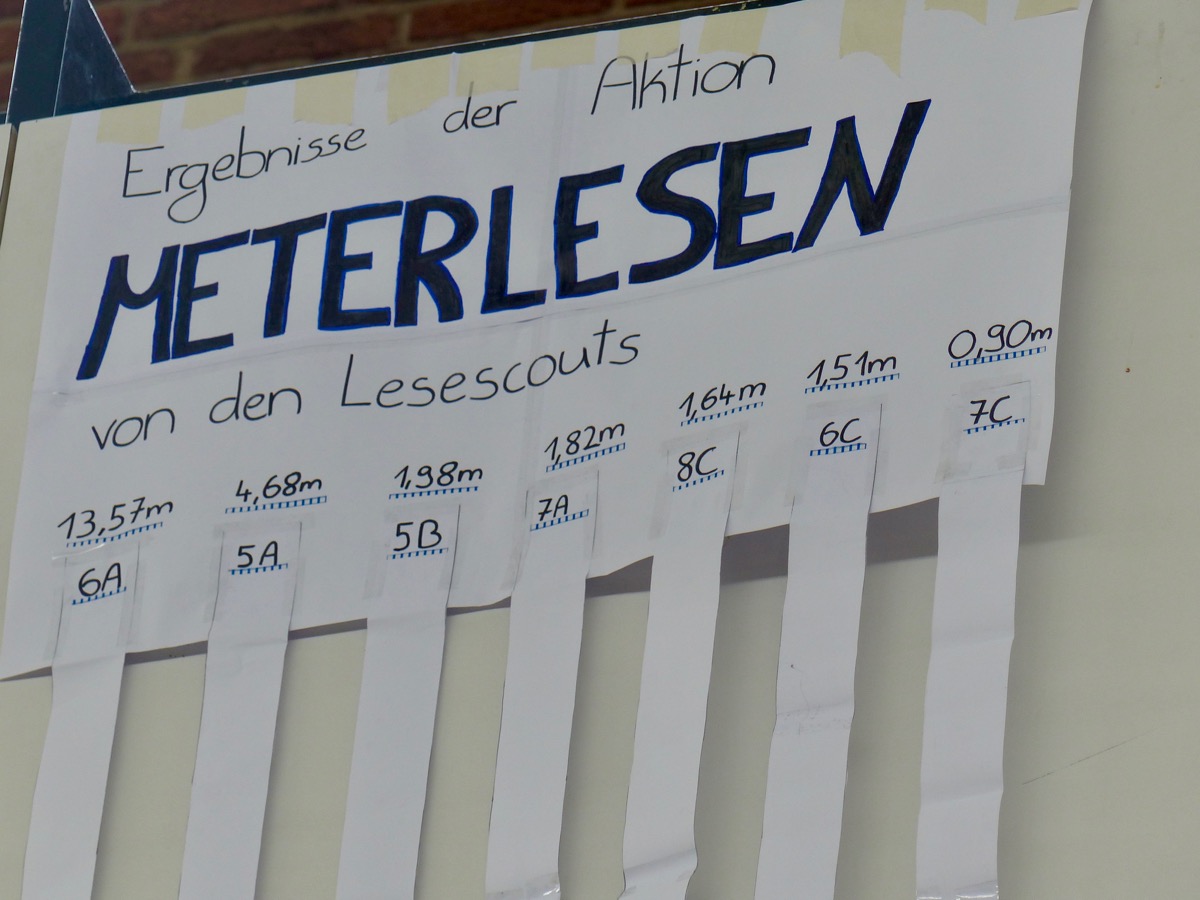 Ergebnisse der Aktion
METERLESEN
von den Lesescouts
13,57m 4,68m 1,98m 1,82m 1,64m 1,51m 0,90m
6A 5A 5B 7A 8C 6C 7C